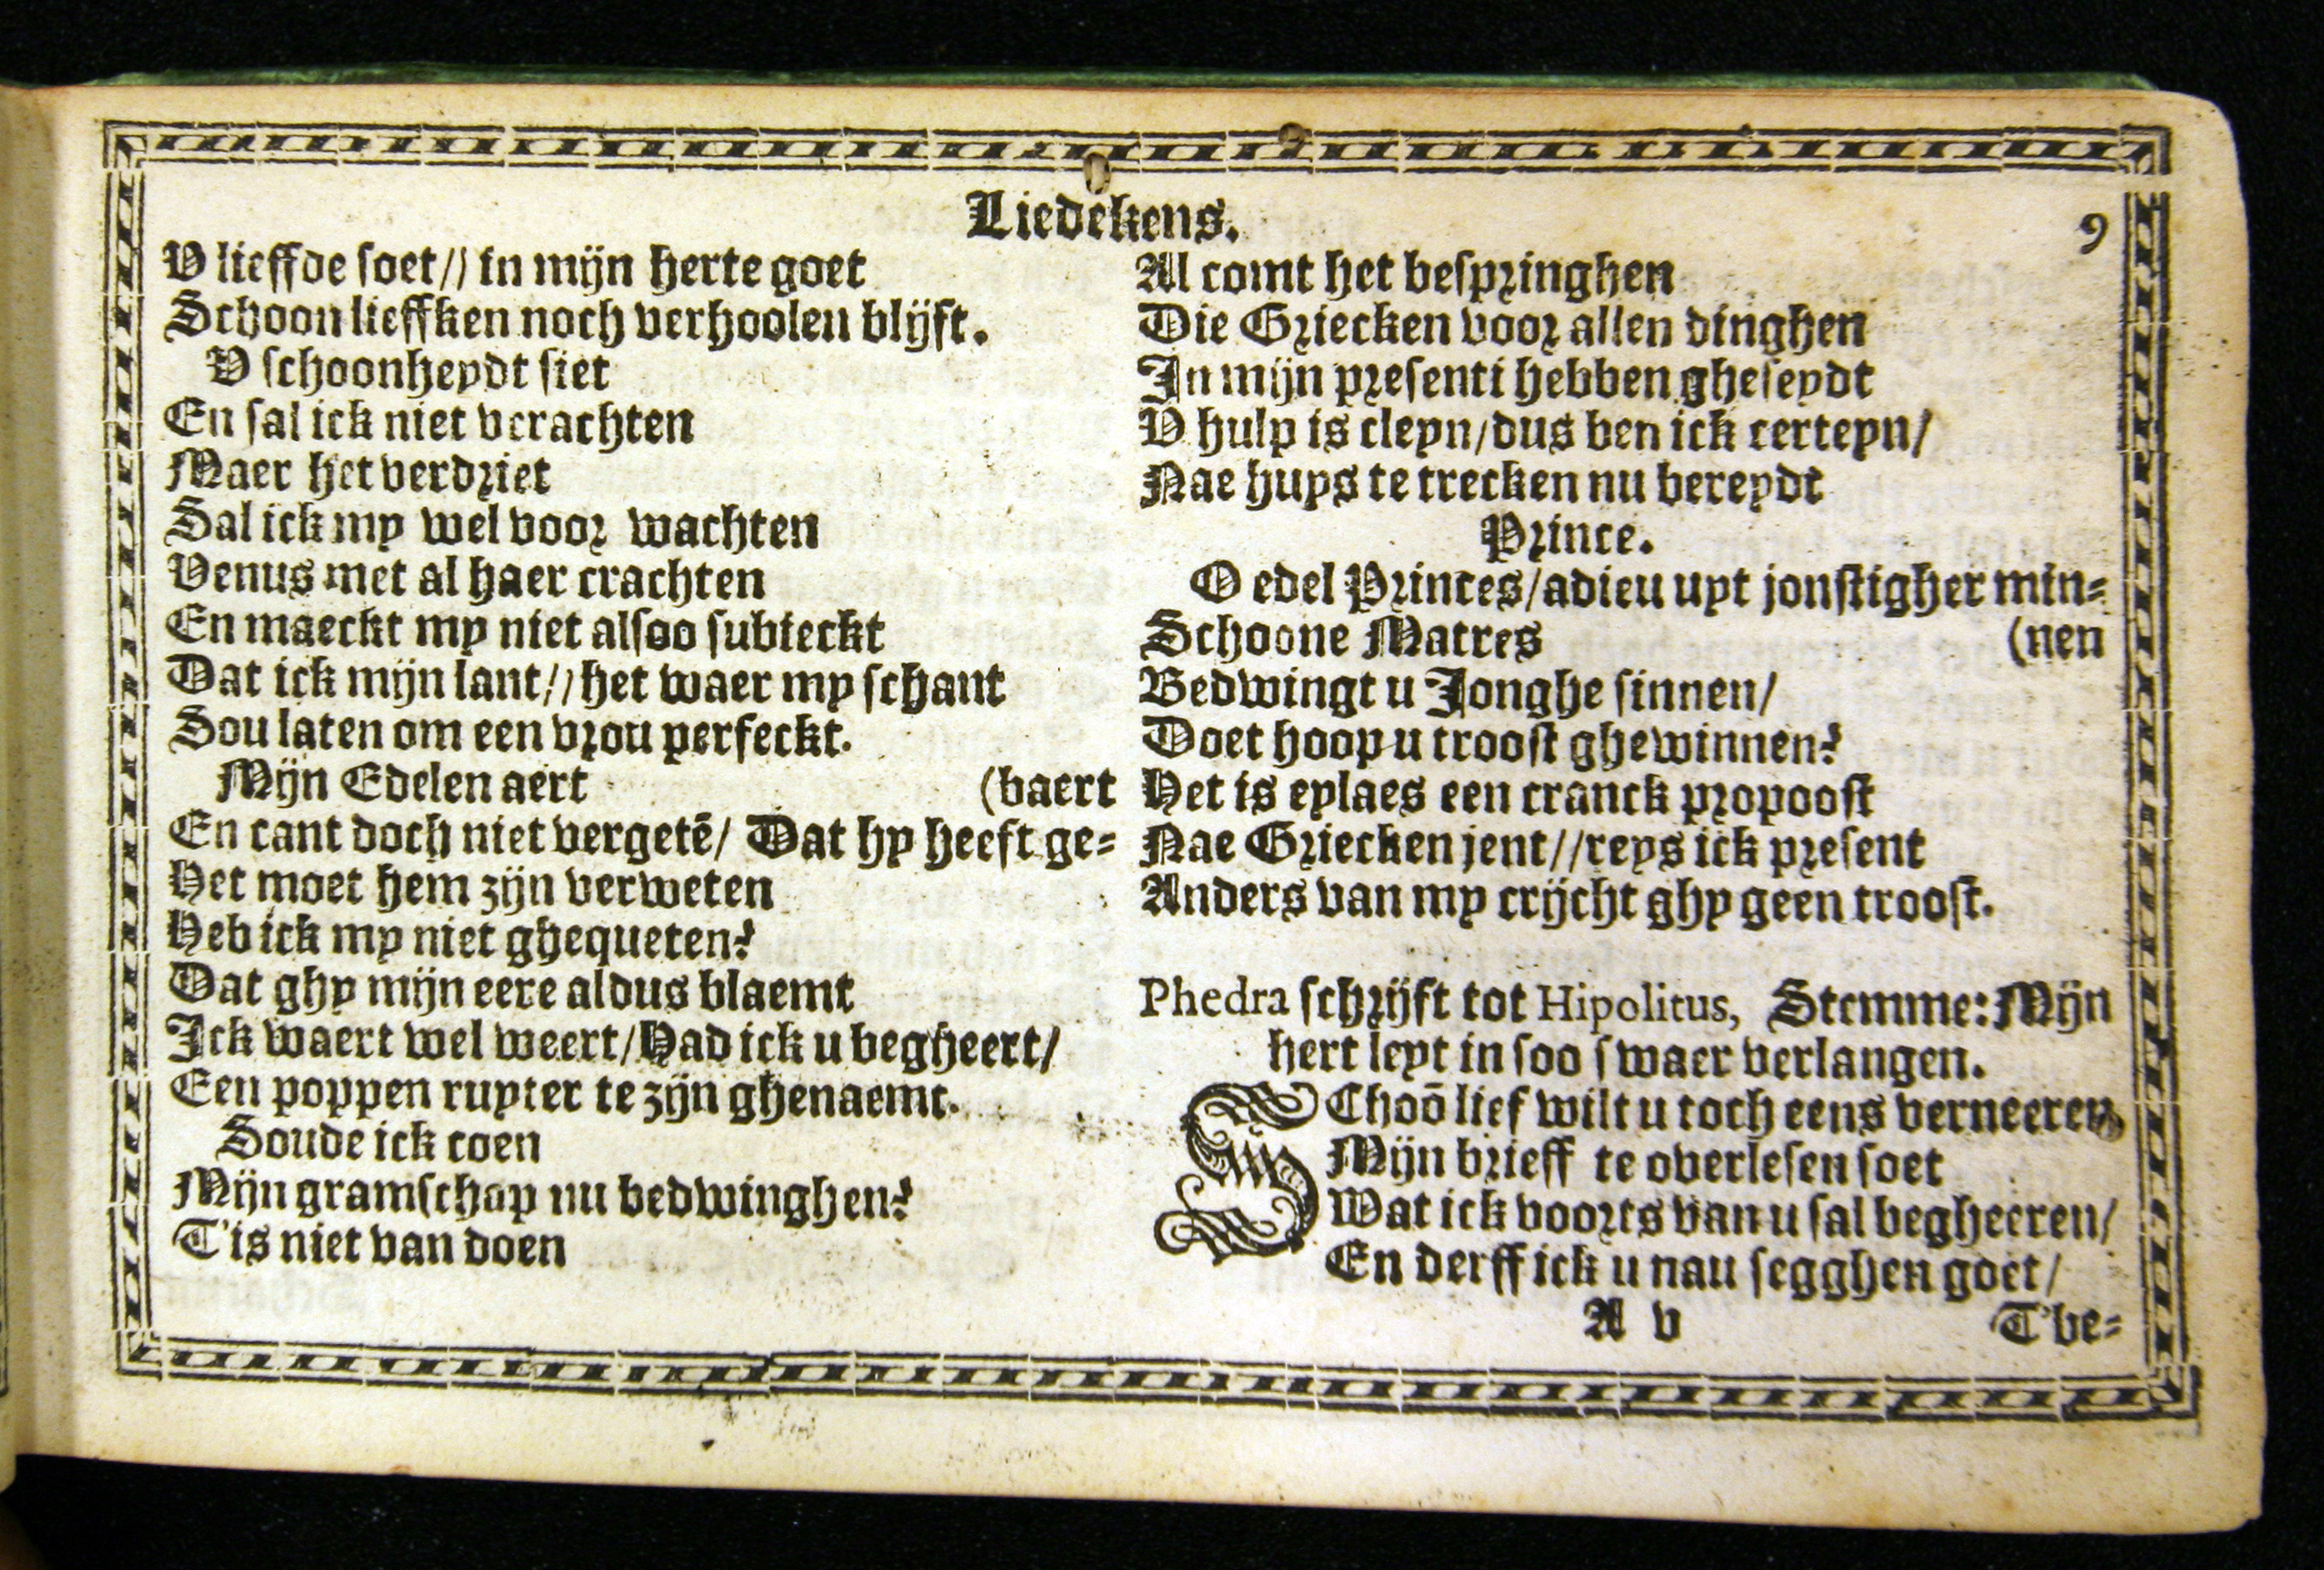 Liedekens.
9
V lieffde soet// in mijn herte goet
Schoon lieffken noch verhoolen blijft.
V schoonheydt siet
En sal ick niet verachten
Maer het verdriet
Sal ick my wel voor wachten
Venus met al haer crachten
En maeckt my niet alsoo subieckt
Dat ick mijn lant// het waer my schant
Sou laten om een vrou perfeckt.
Mijn Edelen aert
(baert
En cant doch niet vergetē/ Dat hy heeft ge-
Het moet hem zijn verweten
Heb ick my niet ghequeten?
Dat ghy mijn eere aldus blaemt
Ick waert wel weert/Had ick u begheert/
Een poppen ruyter te zijn ghenaemt.
Soude ick coen
Mijn gramschap nu bedwinghen?
T'is niet van doen
Al comt het bespringhen
Die Griecken voor allen dinghen
In mijn presenti hebben gheseydt
V hulp is cleyn/dus ben ick certeyn/
Nae huys te trecken nu bereydt
Prince.
O edel Princes/adieu uyt jonstigher min-
Schoone Matres
(nen
Bedwingt u Jonghe sinnen/
Doet hoop u troost ghewinnen?
Het is eylaes een cranck propoost
Nae Griecken jent//reys ick present
Anders van my crijcht ghy geen troost.
Phedra schrijft tot Hipolitus, Stemme: Mijn
hert leyt in soo swaer verlangen.
SChoō lief wilt u toch eens verneeren
Mijn brieff te overlesen soet
Wat ick voorts van u sal begheeren/
En derff ick u nau segghen goet/
A v
T'be-